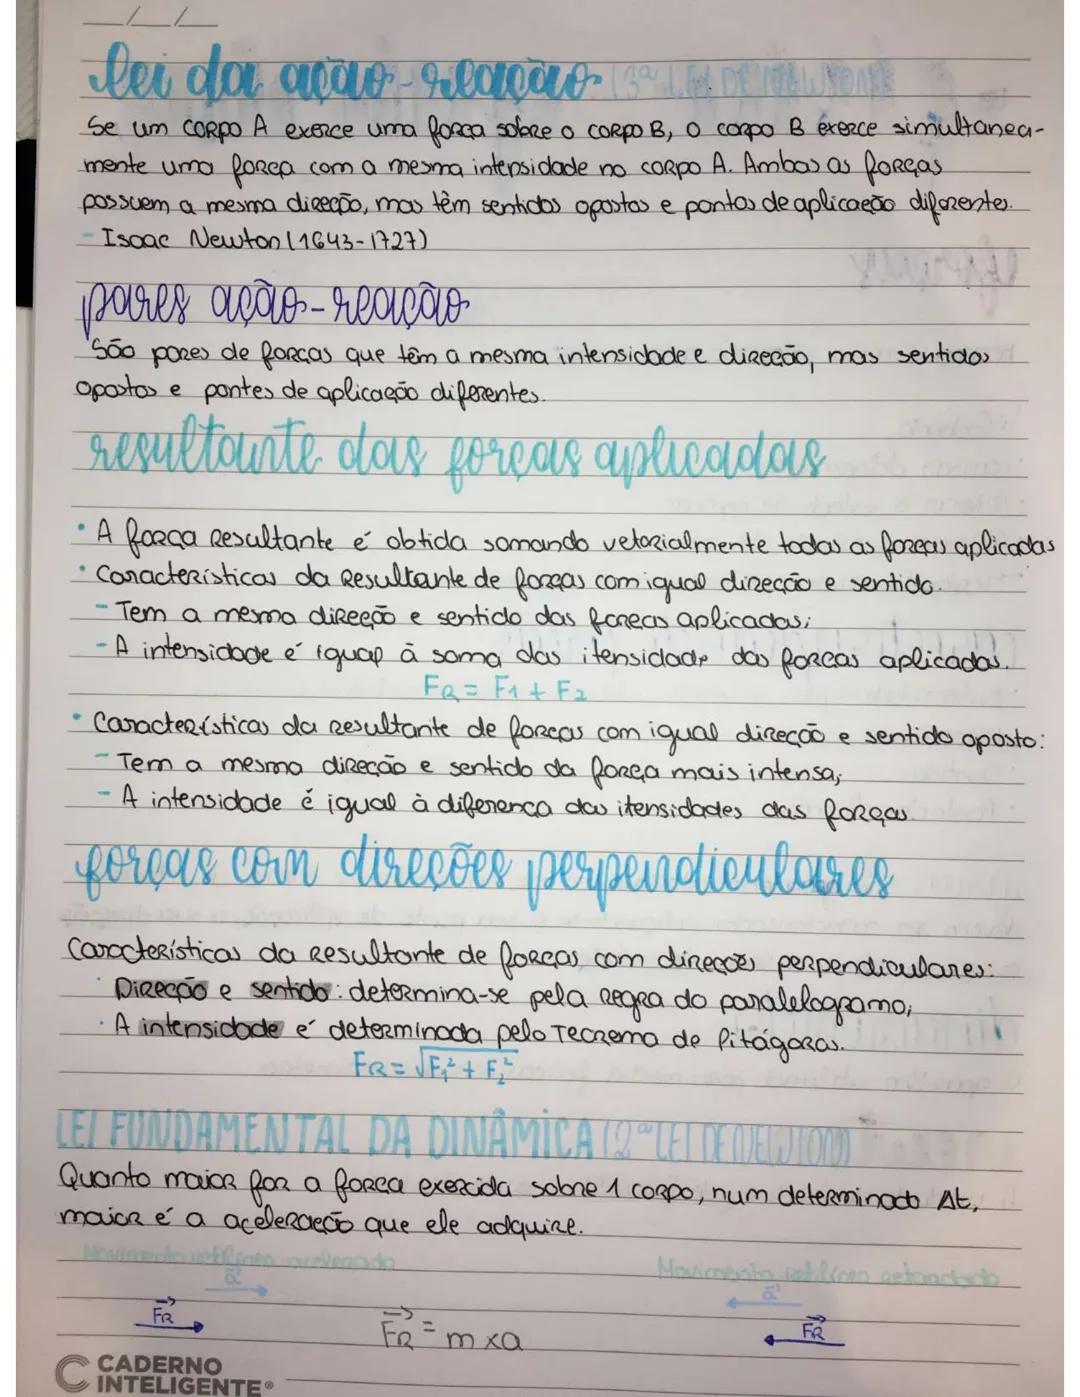 lei da ação-reação (3ª LEI DE NEWTON)
Se um corpo A exerce uma força sobre o corpo B, o corpo B exerce simultanea-
mente uma força com a mesma intensidade no corpo A. Ambas as forças
possuem a mesma direção, mas têm sentidos opostos e pontos de aplicação diferentes.
- Isaac Newton (1643-1727)
pares ação-reação
São pares de forças que têm a mesma intensidade e direção, mas sentidos
opostos e pontes de aplicação diferentes.
resultante das forças aplicadas
• A força resultante é obtida somando vetorialmente todas as forças aplicadas
• Características da resultante de forças com igual direcção e sentido.
- Tem a mesma direção e sentido das forças aplicadas;
- A intensidade é igual à soma das itensidade das forças aplicadas.
FR = F1 + F2
• Características da resultante de forças com igual direcção e sentido oposto:
- Tem a mesma direção e sentido da força mais intensa;
- A intensidade é igual à diferença das itensidades das forças.
forças com direções perpendiculares
Características da resultante de forças com direções perpendiculares:
· Direcção e sentido: determina-se pela regra do paralelogramo;
· A intensidade é determinada pelo Teorema de Pitágoras.
FR = √F1² + F2²
LEI FUNDAMENTAL DA DINÂMICA (2ª LEI DE NEWTON)
Quanto maior for a força exercida sobre 1 corpo, num determinado Δt,
maior é a aceleração que ele adquire.
Movimento retilíneo acelerado Movimento retilíneo retardado
a⃗ a⃗
F⃗R F⃗R = m x a F⃗R
CADERNO
INTELIGENTE®